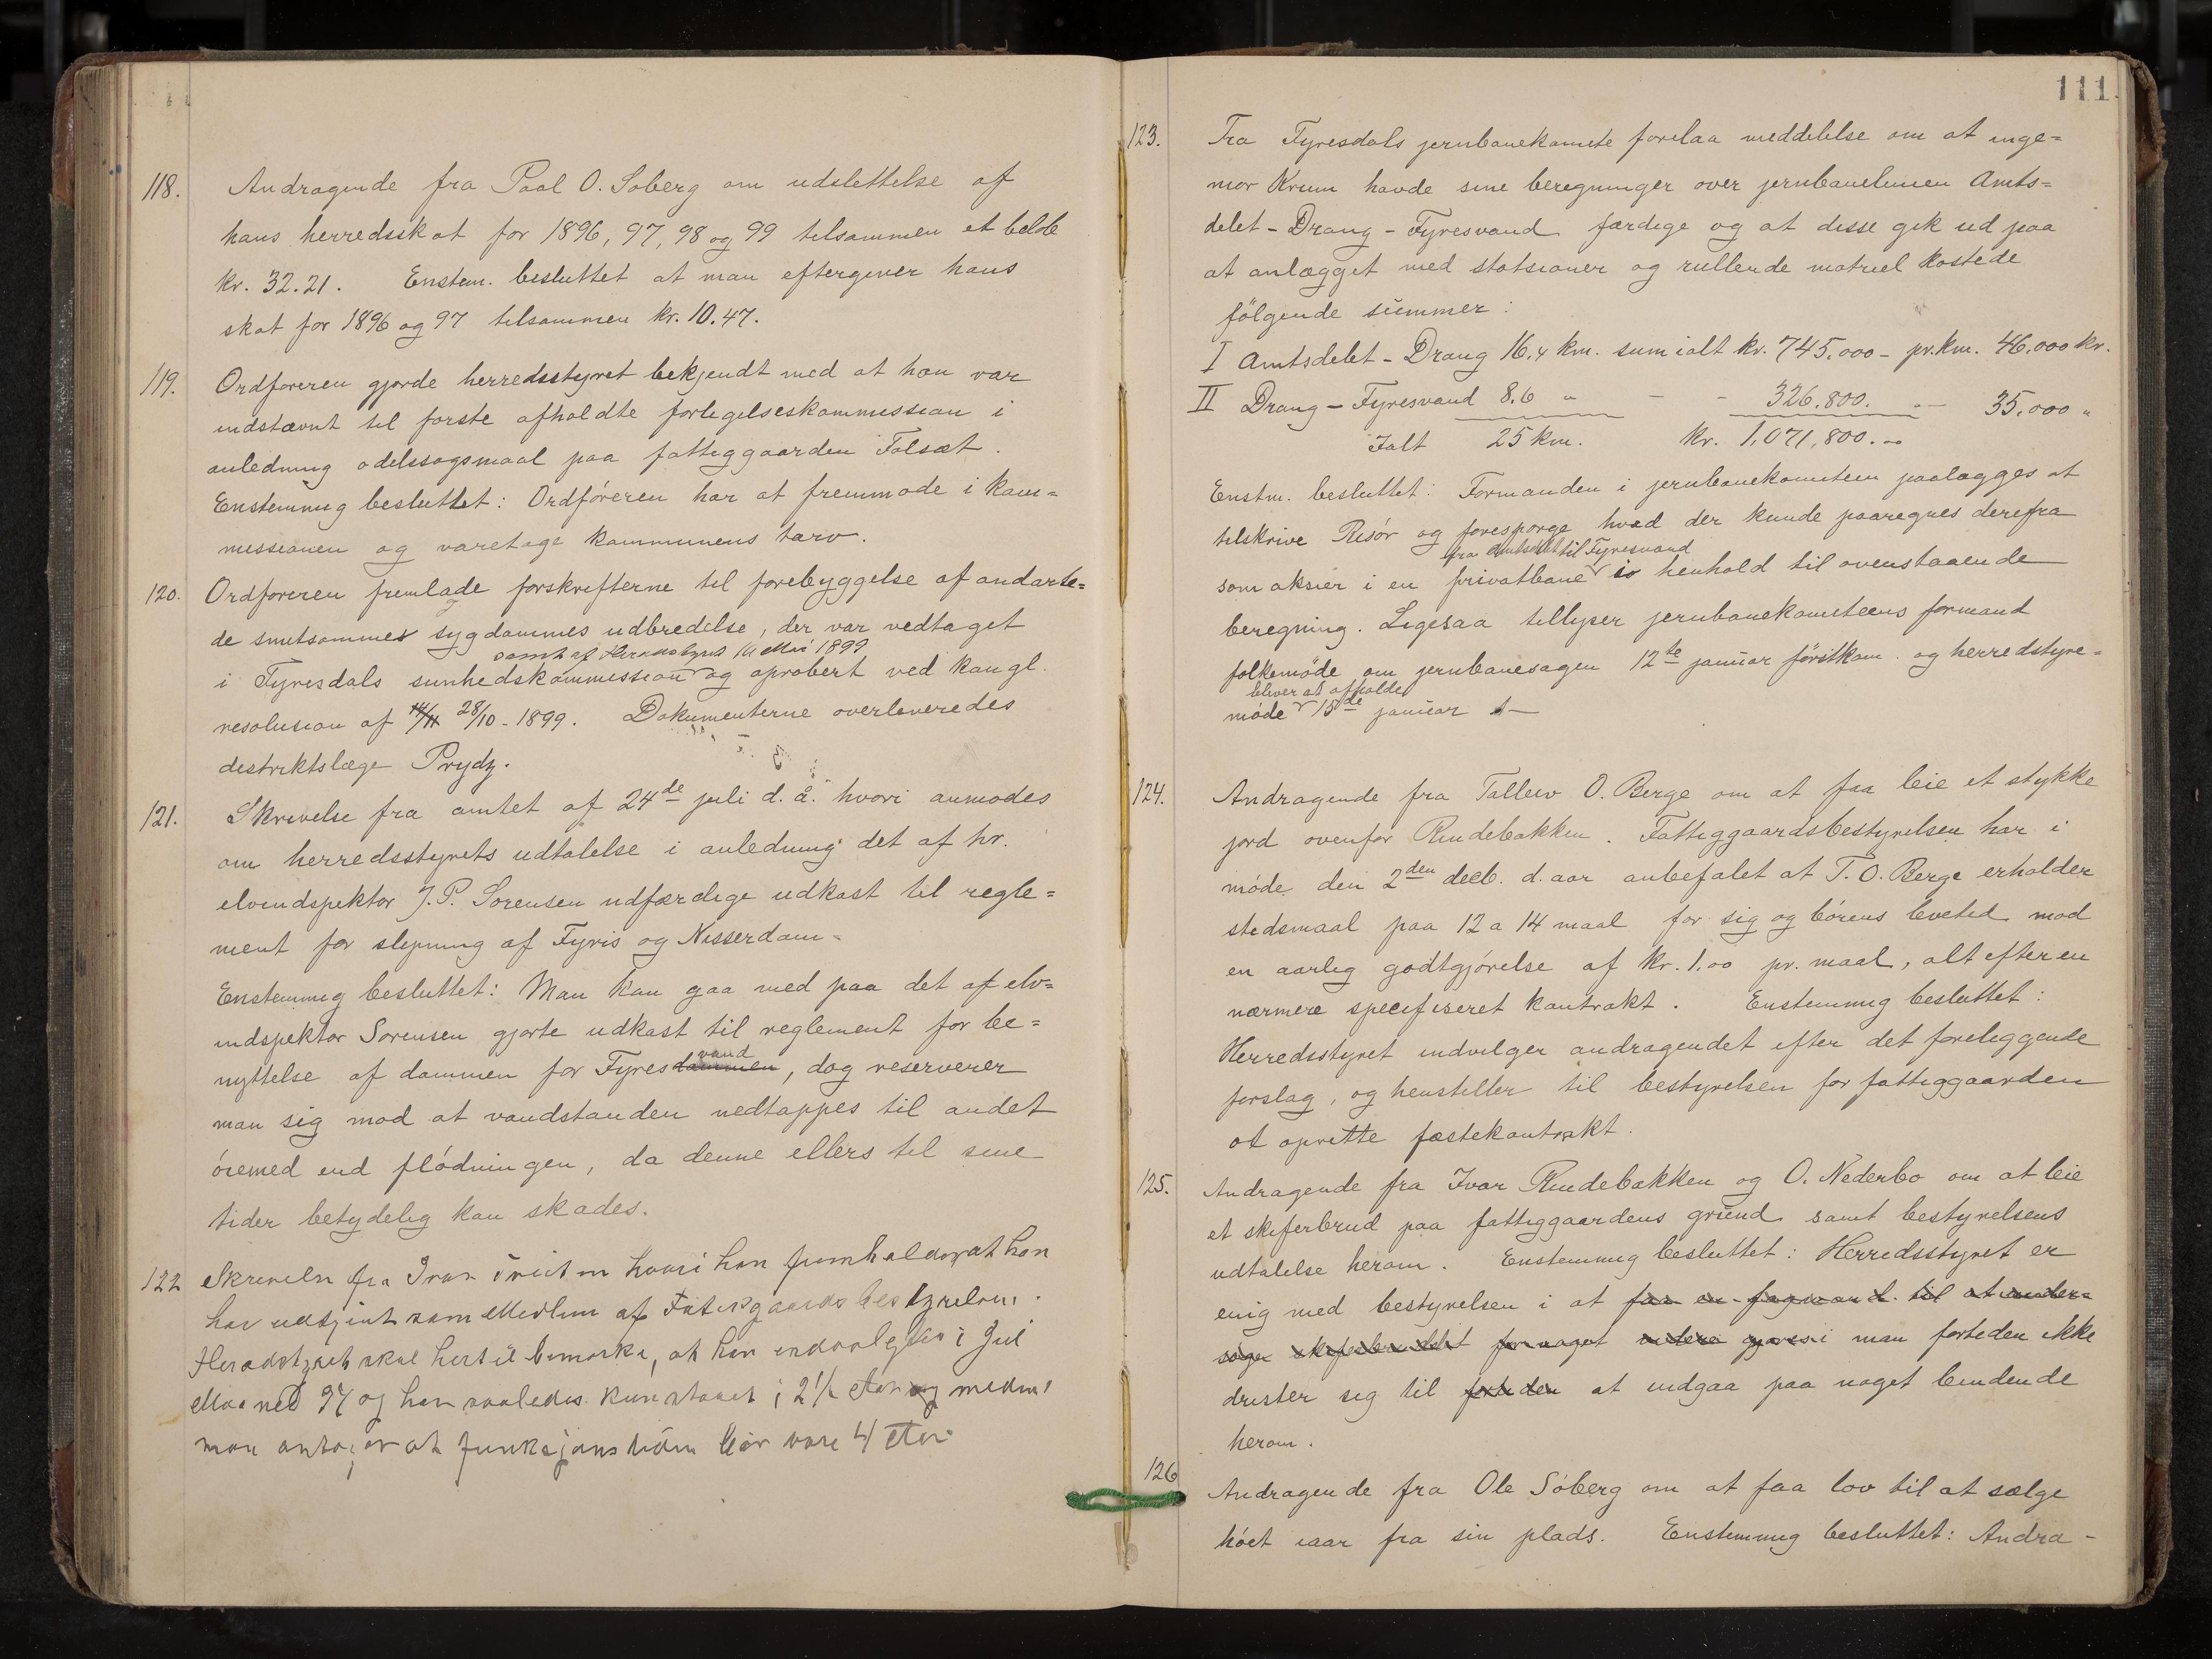 118. Andragende fra Paal O. Søberg om udslettelse af
hans herredsskat for 1896, 97, 98 og 99 tilsammen et beløb
kr. 32.21. Enstem. besluttet at man eftergiver hans
skat for 1896 og 97 tilsammen kr. 10.47.
119. Ordføreren gjorde herredsstyret bekjendt med at han var
indstævnt til første afholdte forligelseskommission i
anledning odelssøgsmaal paa fattiggaarden Folsæt.
Enstemmig besluttet: Ordføreren har at fremmøde i kom=
missionen og varetage kommunens tarv.
120. Ordføreren fremlagde forskrifterne til forebyggelse af ondarte=
de smitsommes sygdommes udbredelse, der var vedtaget
samt af Herredstyret 14 Mai 1899
i Fyresdals sunhedskommission og aprobert ved kongl.
resolusion af 14/11 28/10 - 1899. Dokumenterne overleveredes
distriktslæge Prydz.
121. Skrivelse fra amtet af 24de juli d. å. hvori anmodes
om herredsstyrets udtalelse i anledning det af hr.
elvindspektør J. P. Sørensen udfærdige udkast til regle=
ment for slipning af Fyris og Nisserdam.
Enstemmig besluttet: Man kan gaa med paa det af elv=
indspektør Sørensen gjorte udkast til reglement for be=
nyttelse af dammen for Fyresdammen vand, dog reserverer
man sig mod at vandstanden nedtappes til andet
øiemed end flødningen, da denne ellers til sine
tider betydelig kan skades.
122 Skrivelse fra Ivar Veum hvori han fremholder at han
har udtjent som Medlem af Fatiggaardsbestyrelsen.
Heradstyret skal hertil bemærke, at han indvalgtes i Juli
Maaned 97 og har saaledes kun staaet i 2½ Aar og medens
man antager at funksjonstiden bør være 4 Aar
111.
123. Fra Fyresdals jernbanekomite forelaa meddelelse om at inge=
niør Krum havde sine beregninger over jernbanelinien Amts=
delet - Drang - Fyresvand færdige og at disse gik ud paa
at anlægget med statsioner og rullende matriel kostede
følgende summer:
I Amtsdelet - Drang 16,4 km. sum ialt kr. 745.000 - pr. km. 46.000 kr.
II Drang - Fyresvand 8.6 " - - 326.800. - 35.000 "
Ialt 25 km. kr. 1,071,800. -
Enstm. besluttet: Formanden i jernbanekomiteen paalægges at
tilskrive Risør og forespørge hvad der kunde paaregnes derifra
fra Amtsdelet til Fyresvand
som aksier i en privatbane i henhold til ovenstaaende
beregning. Ligesaa tillyser jernbanekomiteens formand
folkemøde om jernbanesagen 12te januar förstkom. og herredstyre=
bliver at afholde
møde 15de januar
124. Andragende fra Tallew O. Berge om at faa leie et stykke
jord ovenfor Rindebakken. Fattiggaardsbestyrelsen har i
møde den 2den decb. d. aar anbefalet at T. O. Berge erholder
stedsmaal paa 12 a 14 maal for sig og børens levetid mod
en aarlig godtgjørelse af kr. 1.00 pr. maal, alt efter en
nærmere specifiseret kontrakt. Enstemmig besluttet:
Herredsstyret indvilger andragendet efter det foreliggende
forslag, og henstiller til bestyrelsen for fattiggaarden
at oprette fæstekontrakt.
125. Andragende fra Ivar Rindebakken og O. Nederbø om at leie
et skiferbrud paa fattiggaardens grund samt bestyrelsens
udtalelse herom. Enstemmig besluttet: Herredsstyret er
enig med bestyrelsen i at faa en fagmand til at under=
søge skiferbruddet gjøres i man fortiden ikke
drister sig til fortiden at indgaa paa noget bindende
herom.
126 Andragende fra Ole Søberg om at faa lov til at sælge
høet iaar fra sin plads. Enstemmig besluttet: Andra-